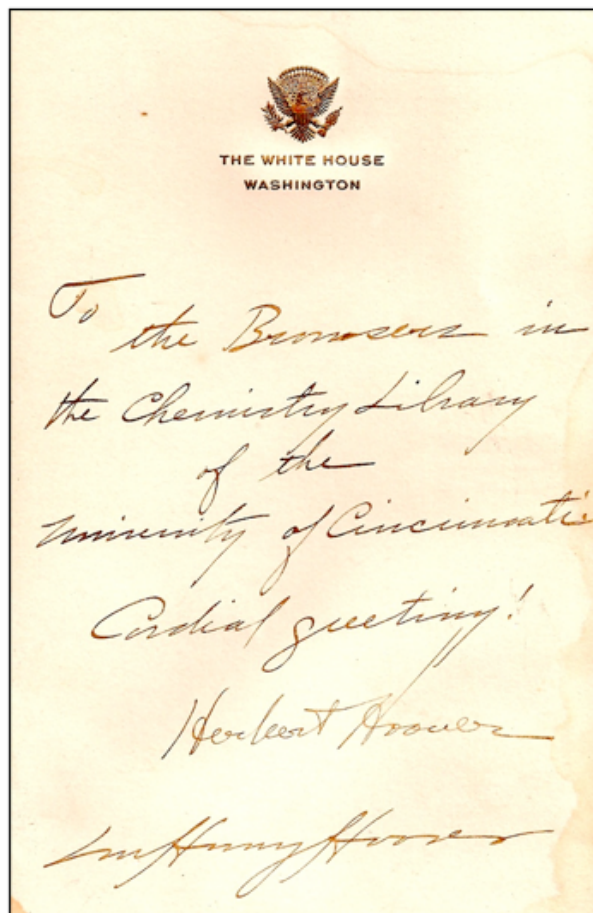 THE WHITE HOUSE
WASHINGTON
To
the Browsers in
the Chemistry Library
of the
University of Cincinnati
Cordial greeting!
Herbert Hoover
Lou Henry Hoover